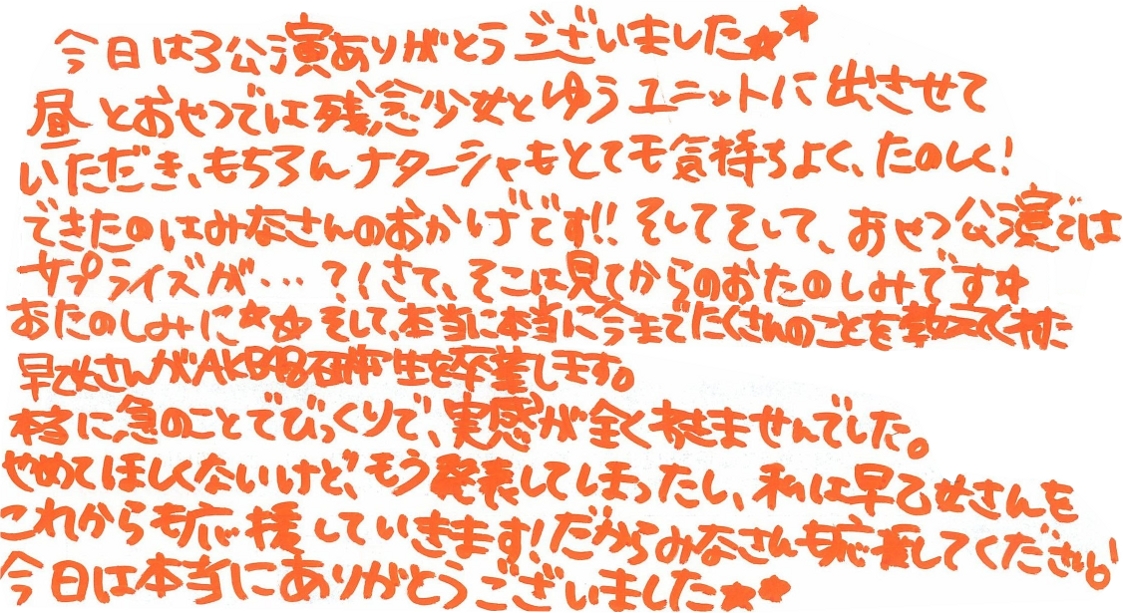 今日は3公演ありがとうございました☆★
昼とおやつでは残念少女とゆうユニットに出させて
いただき、もちろんナターシャもとても気持ちよく、たのしく!
できたのはみなさんのおかげです!! そしてそして、おやつ公演では
サプライズが…?!さて、そこは見てからのおたのしみです☆
おたのしみに☆☆ そして、本当に本当に今までたくさんのことを教えてくれた
早乙女さんがAKB48研究生を卒業します。
本当に急のことでびっくりで、実感が全くわきませんでした。
やめてほしくないけど、もう発表してしまったし、私は早乙女さんを
これからも応援していきます!だからみなさんも応援してください!
今日は本当にありがとうございました★★